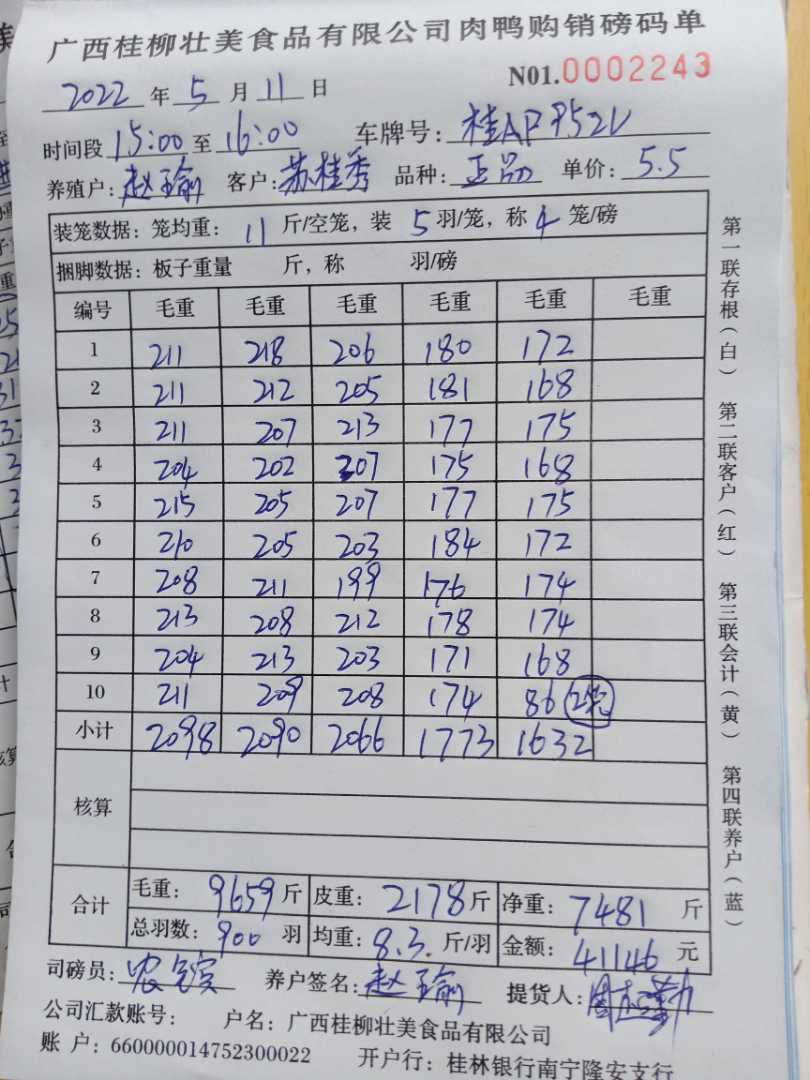 广西桂柳壮美食品有限公司肉鸭购销磅码单
2022 年 5 月 11 日 N01.0002243
时间段 15:00 至 16:00 车牌号:
养殖户: 赵玉瑜 客户: 苏桂秀 品种: 正品 单价: 5.5
装笼数据: 笼均重: 11 斤/空笼, 装 5 羽/笼, 称 4 笼/磅
捆脚数据: 板子重量 斤, 称 羽/磅
编号 毛重 毛重 毛重 毛重 毛重 毛重
1 211 218 206 180 172
2 211 212 205 181 168
3 211 207 213 177 175
4 204 202 207 175 168
5 215 205 207 177 175
6 210 205 203 184 172
7 208 211 199 176 174
8 213 208 212 178 174
9 204 213 203 171 168
10 211 209 208 174 86 (2笼)
小计 2098 2090 2066 1773 1632
核算
合计 毛重: 9659 斤 皮重: 2178 斤 净重: 7481 斤
总羽数: 900 羽 均重: 8.3. 斤/羽 金额: 41146 元
司磅员: 养户签名: 赵玉瑜 提货人:
公司汇款账号: 户名: 广西桂柳壮美食品有限公司
账 户: 660000014752300022 开户行: 桂林银行南宁隆安支行
第一联存根(白) 第二联客户(红) 第三联会计(黄) 第四联养户(蓝)